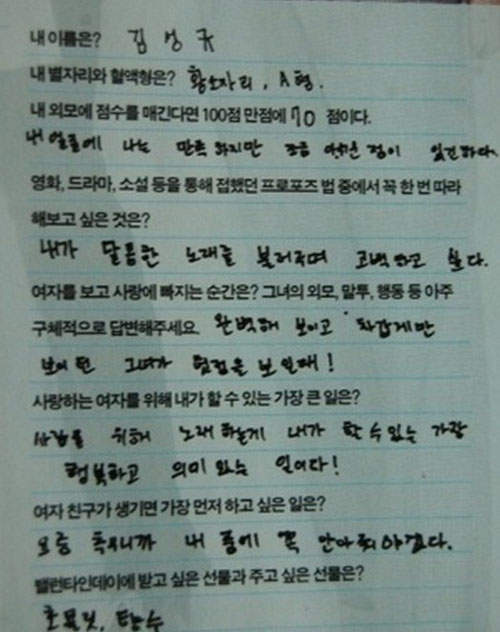 내 이름은? 김성규
내 별자리와 혈액형은? 황소자리, A형.
내 외모에 점수를 매긴다면 100점 만점에 70 점이다.
내 얼굴에 나는 만족 하지만 조금 아쉬운 점이 있긴하다.
영화, 드라마, 소설 등을 통해 접했던 프로포즈 법 중에서 꼭 한 번 따라
해보고 싶은 것은?
내가 달콤한 노래를 불러주며 고백하고 싶다.
여자를 보고 사랑에 빠지는 순간은? 그녀의 외모, 말투, 행동 등 아주
구체적으로 답변해주세요. 완벽해 보이고 차갑게만
보이던 그녀가 헛점을 보일때!
사랑하는 여자를 위해 내가 할 수 있는 가장 큰 일은?
사람을 위해 노래하는게 내가 할 수 있는 가장
행복하고 의미 있는 일이다!
여자 친구가 생기면 가장 먼저 하고 싶은 일은?
요즘 추우니까 내 품에 꼭 안아줘야겠다.
밸런타인데이에 받고 싶은 선물과 주고 싶은 선물은?
초콜릿, 향수